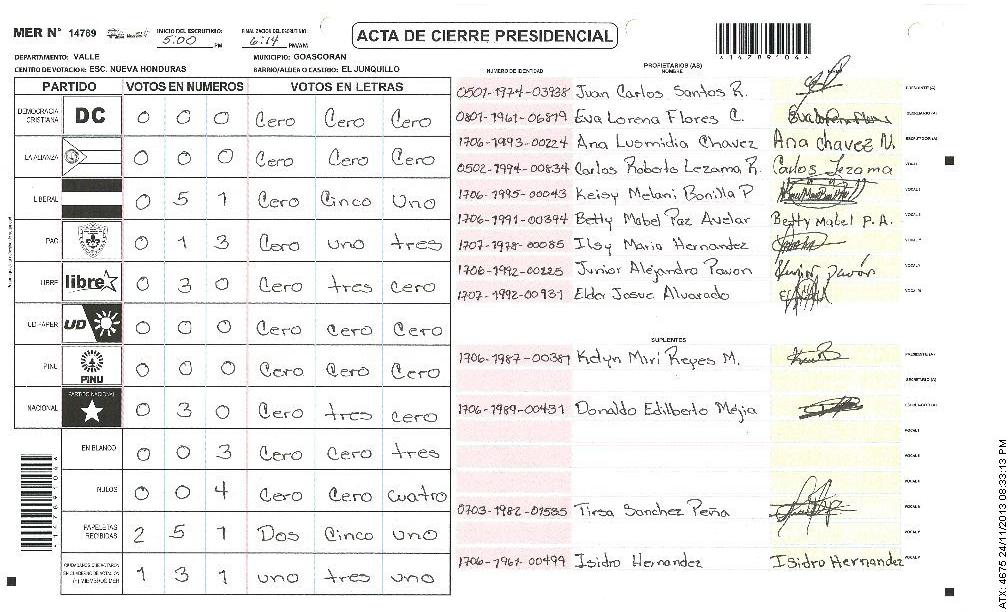 MER N° 14769 INICIO DEL ESCRUTINIO: 5:00 PM FINALIZACION DEL ESCRUTINIO: 6:14 PM/AM ACTA DE CIERRE PRESIDENCIAL
DEPARTAMENTO: VALLE MUNICIPIO: GOASCORAN
CENTRO DE VOTACION: ESC. NUEVA HONDURAS BARRIO/ALDEA O CASERIO: EL JUNQUILLO
PARTIDO VOTOS EN NUMEROS VOTOS EN LETRAS
DEMOCRACIA CRISTIANA DC 0 0 0 Cero Cero Cero
LA ALIANZA 0 0 0 Cero Cero Cero
LIBERAL 0 5 1 Cero Cinco Uno
PAC 0 1 3 Cero uno tres
LIBRE libre 0 3 0 Cero tres cero
UD-FAPER UD 0 0 0 Cero cero Cero
PINU PINU 0 0 0 Cero Cero Cero
NACIONAL PARTIDO NACIONAL 0 3 0 Cero tres cero
EN BLANCO 0 0 3 Cero Cero tres
NULOS 0 0 4 Cero Cero cuatro
PAPELETAS RECIBIDAS 2 5 1 Dos Cinco uno
1 3 1 uno tres uno
NUMERO DE IDENTIDAD PROPIETARIOS (AS) NOMBRE
0501-1974-03938 Juan Carlos Santos R. PRESIDENTE (A)
0801-1961-06819 Eva Lorena Flores C. SECRETARIO (A)
1706-1993-00224 Ana Lusmidia Chavez Ana chavez N. ESCRUTADOR (A)
0502-1994-00834 Carlos Roberto Lezama R. Carlos Lezama VOCAL I
1706-1995-00043 Keisy Melani Bonilla P
1706-1991-00394 Betty Mabel Paz Avelar Betty Mabel P.A.
1707-1978-00085 Ilsy Maria Hernandez
1706-1992-00225 Junior Alejandro Pavon Junior Pavón
1707-1992-00931 Elder Josue Alvarado
SUPLENTES
1706-1987-00381 Kelyn Miri Reyes M. PRESIDENTE (A)
SECRETARIO (A)
1706-1989-00431 Donaldo Edilberto Mejia ESCRUTADOR (A)
0703-1982-01585 Tirsa Sanchez Peña
1706-1967-00499 Isidro Hernandez Isidro Hernandez
ATX: 4675 24/11/2013 08:33:13 PM